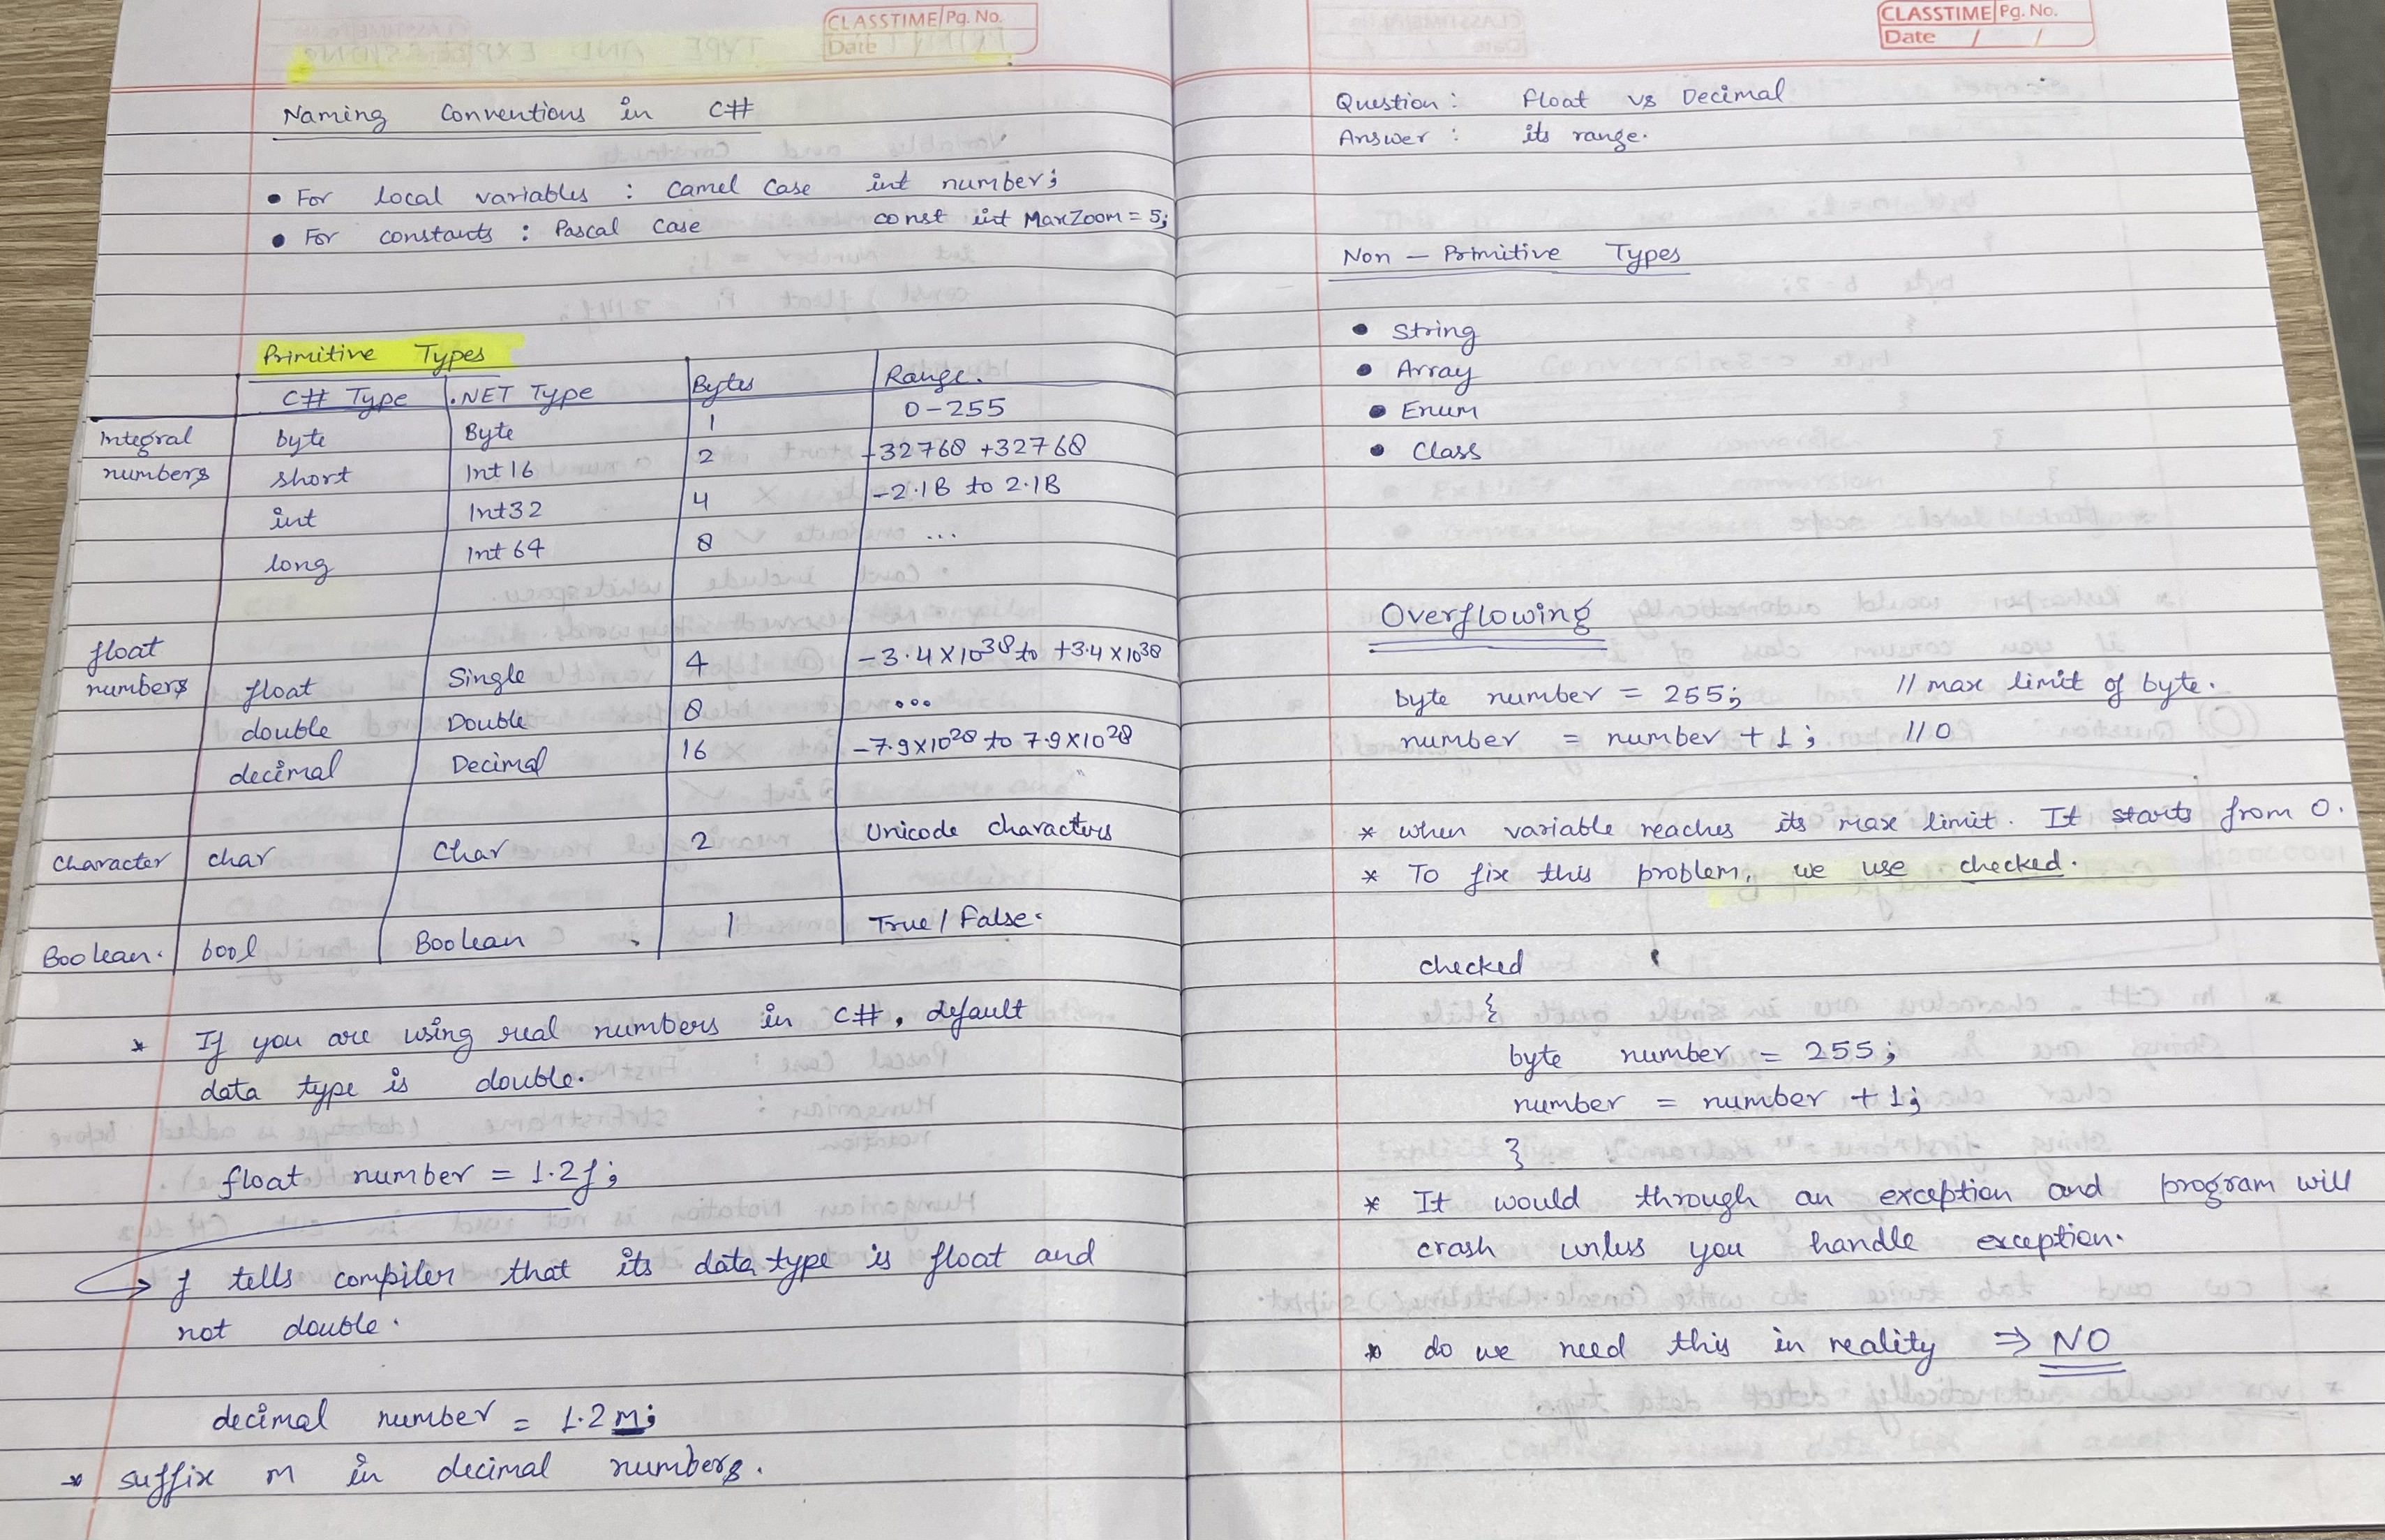 CLASSTIME Pg. No.
Date
Naming Conventions in C#
• For local variables : Camel Case int number;
• For constants : Pascal Case const int MaxZoom = 5;
Primitive Types
C# Type .NET Type Bytes Range.
Integral numbers byte Byte 1 0-255
short Int 16 2 -32768 +32768
int Int32 4 -2.1B to 2.1B
long Int 64 8 ...
float numbers float Single 4 -3.4 X 10^38 to +3.4 X 10^38
double Double 8 ...
decimal Decimal 16 -7.9X10^28 to 7.9X10^28
Character char Char 2 Unicode characters
Boolean. bool Boolean 1 True / False.
* If you are using real numbers in C#, default
data type is double.
float number = 1.2f;
→ f tells compiler that its data type is float and
not double.
decimal number = 1.2m;
* suffix m in decimal numbers.
CLASSTIME Pg. No.
Date / /
Question : Float vs Decimal
Answer : its range.
Non - Primitive Types
• String
• Array
• Enum
• Class
Overflowing
byte number = 255; // max limit of byte.
number = number + 1; // 0
* when variable reaches its max limit. It starts from 0.
* To fix this problem, we use checked.
checked
{
byte number = 255;
number = number + 1;
}
* It would through an exception and program will
crash unless you handle exception.
* do we need this in reality ⇒ NO